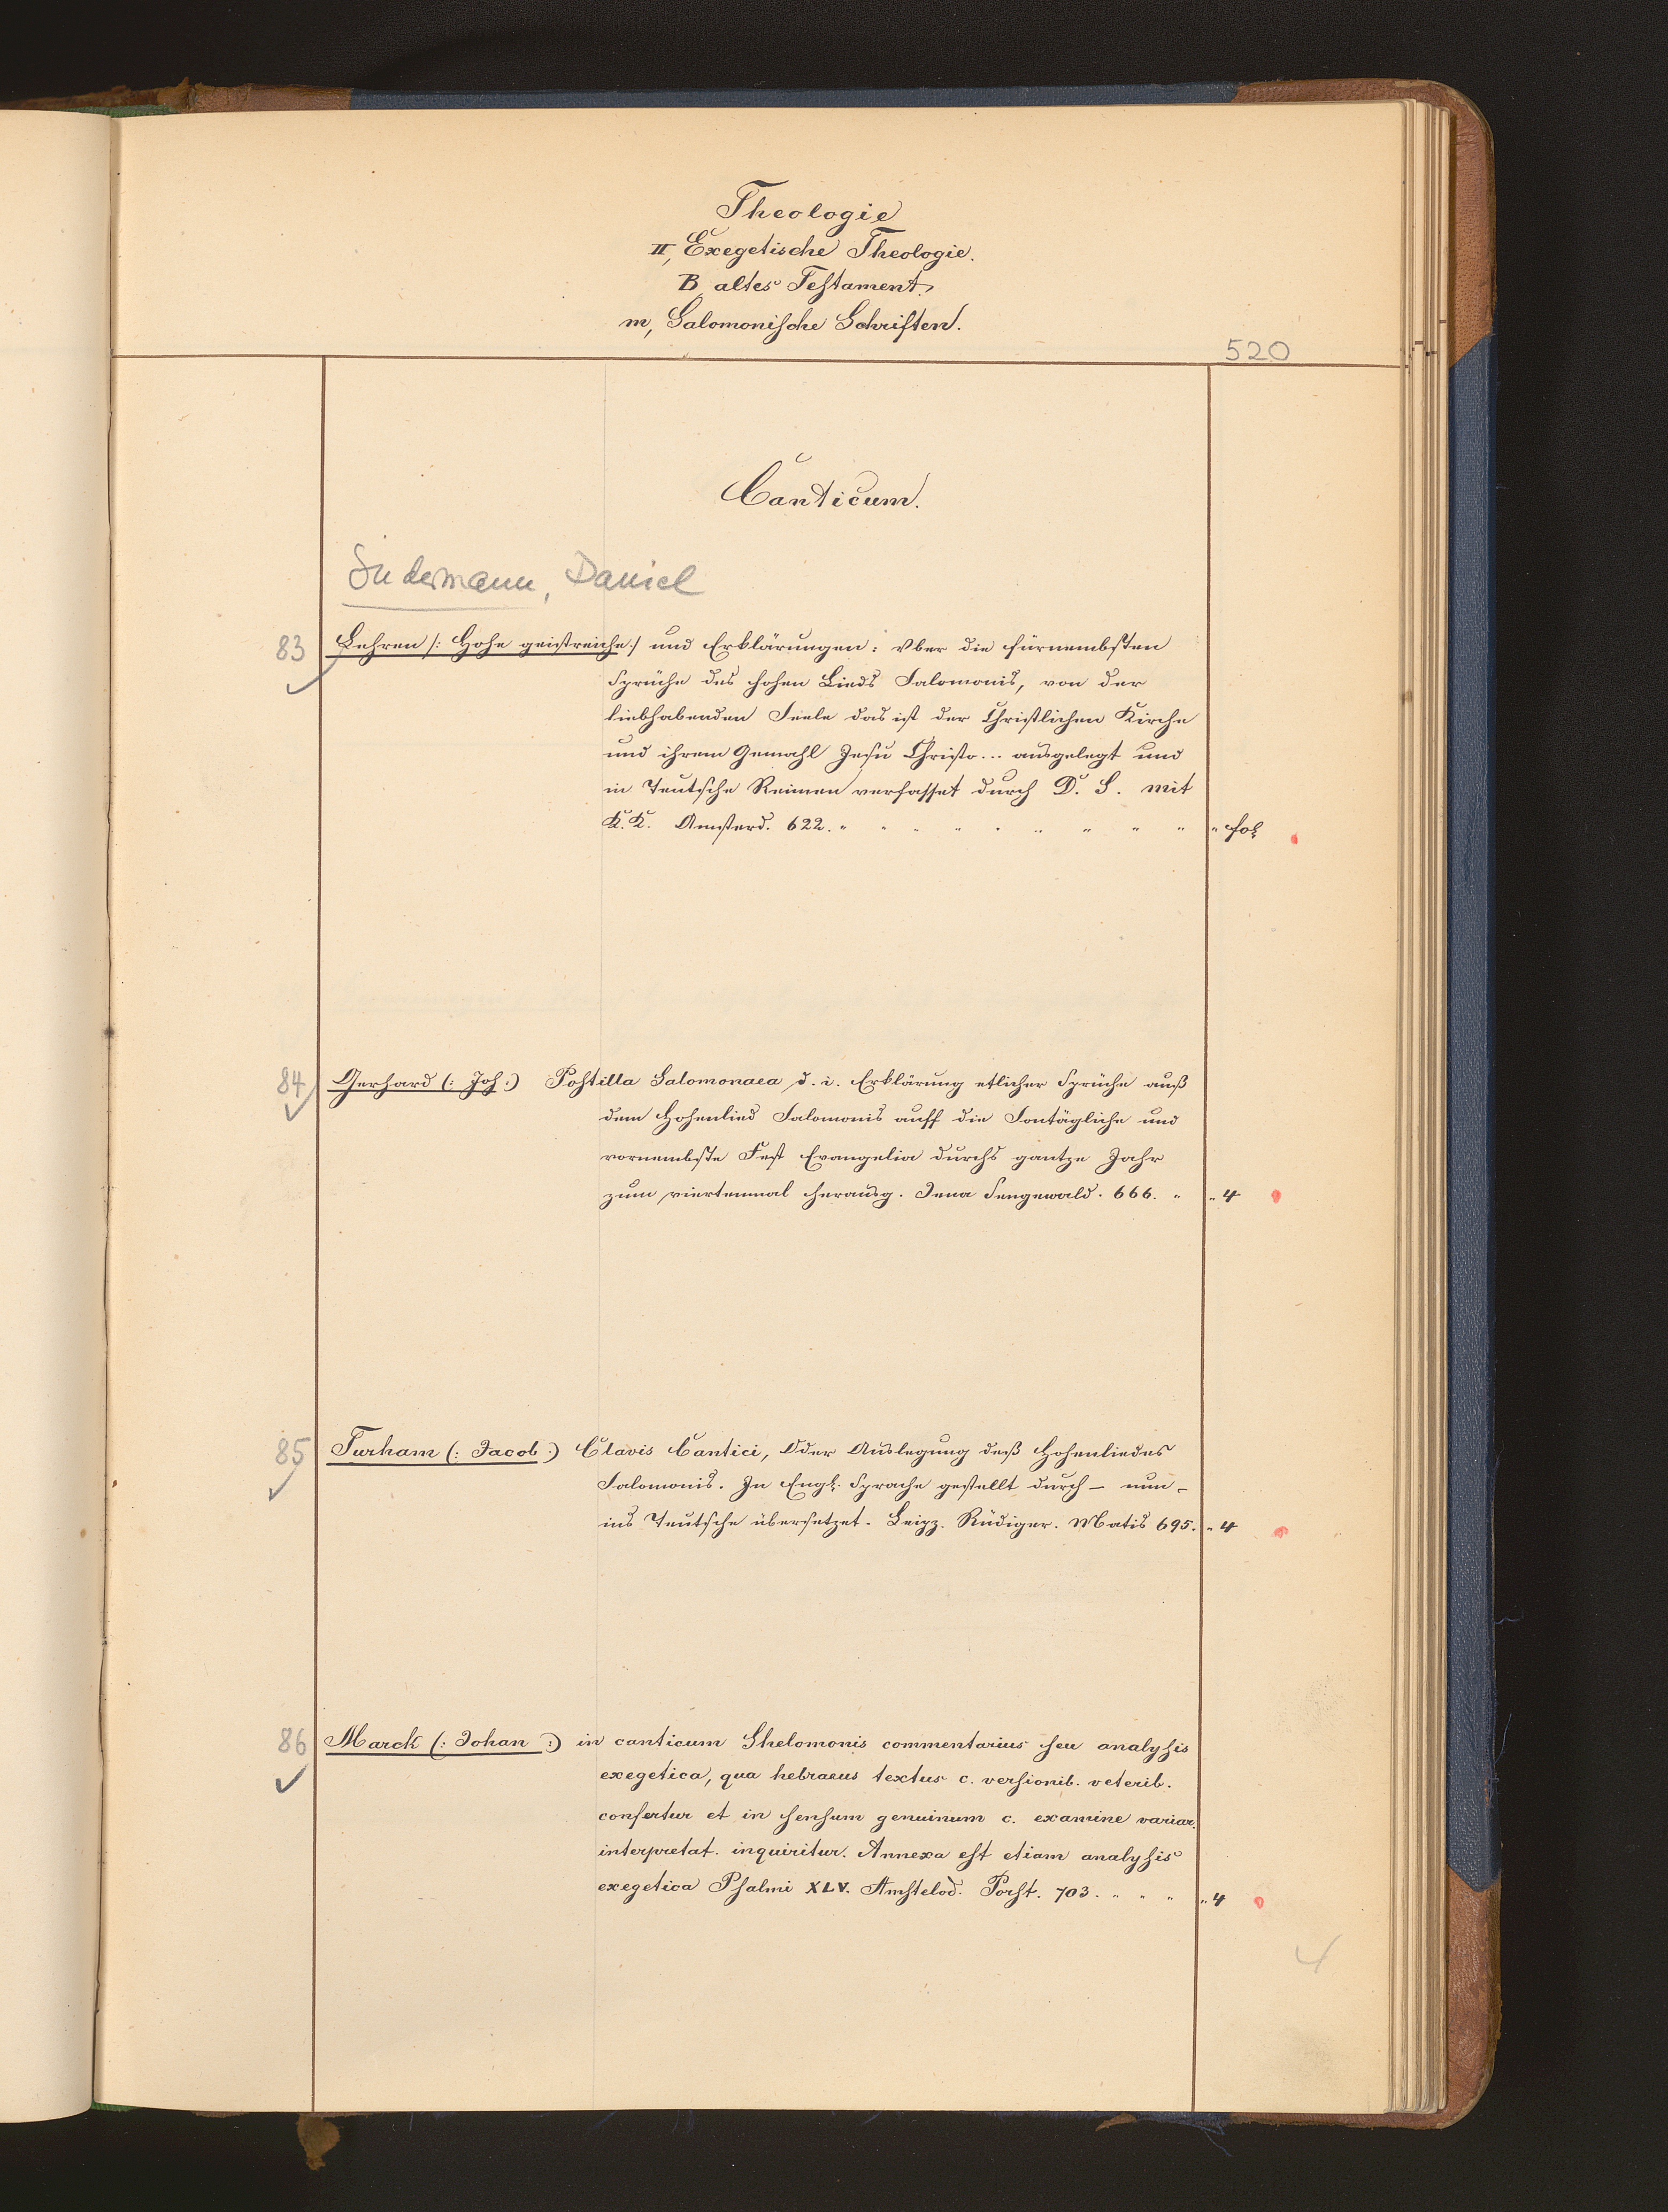 Theologie
II, Exegetische Theologie.
B altes Testament.
m, Salomonische Schriften.
520
Canticum.
Sudermann, Daniel
83 Lehren /: Hohe geistreiche :/ und Erklärungen: Vber die fürnembsten
Sprüche des hohen Lieds Salomonis, von der
liebhabenden Seele das ist der Christlichen Kirche
und ihrem Gemahl Jesu Christo... ausgelegt und
in Teutsche Reimen verfasset durch D. S. mit
K.K. Amsterd. 622. " " " " " " " " " " fol
84 Gerhard (: Joh :) Postilla Salomonaea d. i. Erklärung etlicher Sprüche auß
dem Hohenlied Salomonis auff die Sontägliche und
vornembste Fest Evangelia durchs gantze Jahr
zum viertenmal herausg. Jena Sengewald. 666. " " 4
85 Turham (: Jacob :) Clavis Cantici, Oder Auslegung deß Hohenliedes
Salomonis. In Engl. Sprache gestellt durch – nun –
ins Teutsche übersetzet. Leipz. Rüdiger. Matis 695. " 4
86 Marck (: Johan :) in canticum Shelomonis commentarius seu analysis
exegetica, qua hebraeus textus c. versionib. veterib.
confertur et in sensum genuinum c. examine variar.
interpretat. inquiritur. Annexa est etiam analysis
exegetica Psalmi XLV. Amstelod. Porst. 703. " " " " 4
4